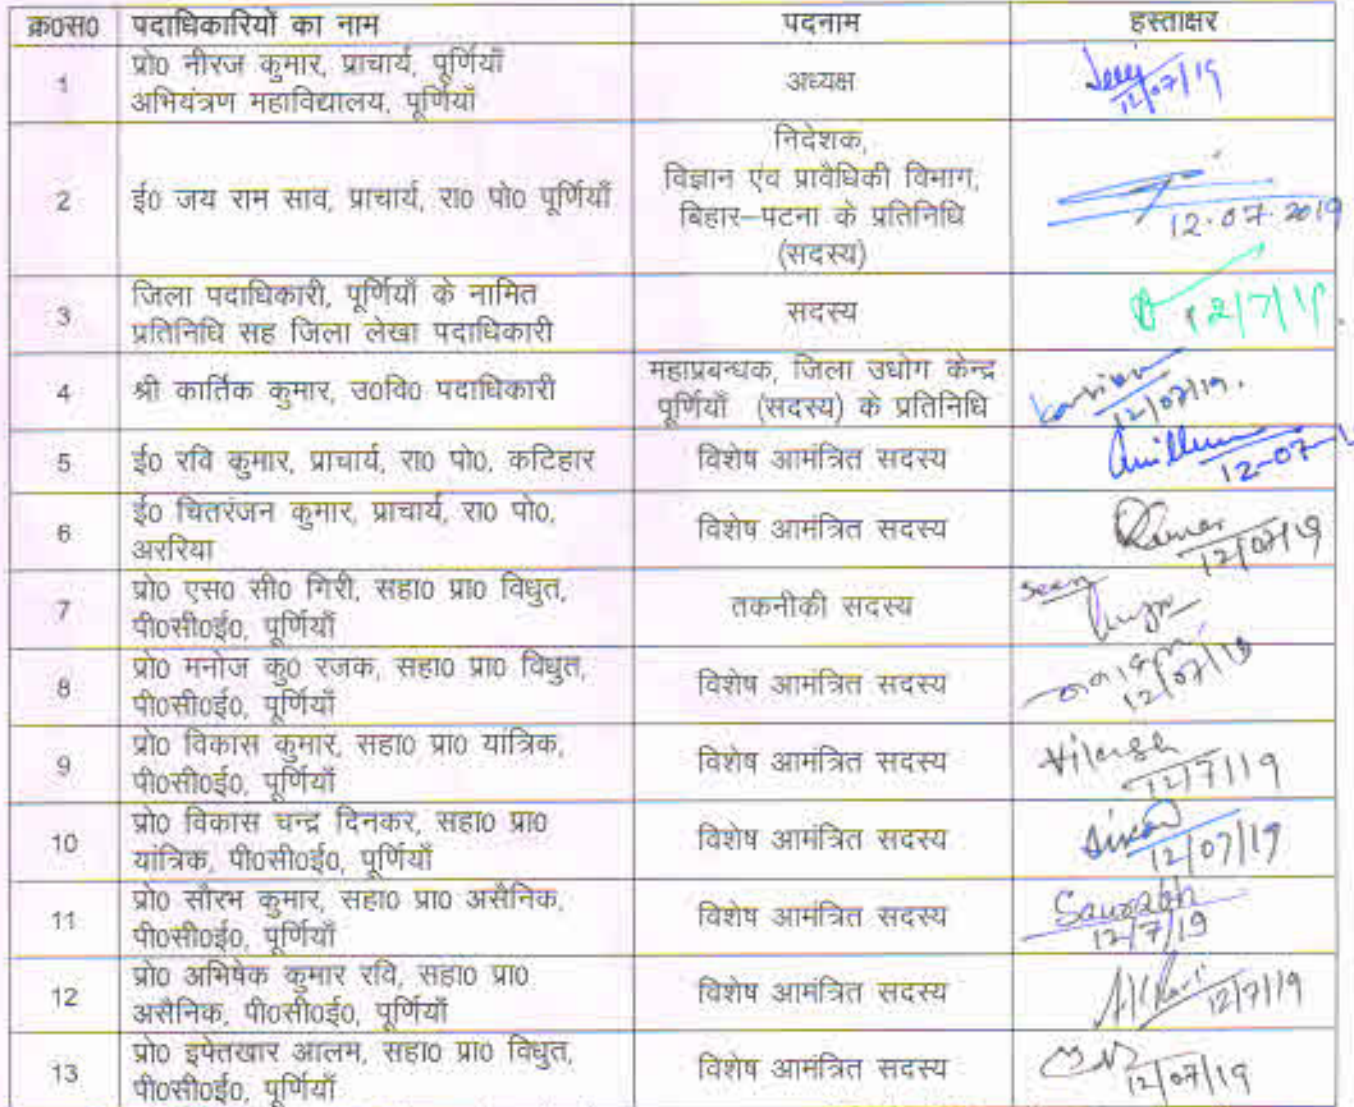 क्र0स0 पदाधिकारियों का नाम पदनाम हस्ताक्षर
1 प्रो0 नीरज कुमार, प्राचार्य, पूर्णियाँ
अभियंत्रण महाविद्यालय, पूर्णियाँ
अध्यक्ष
12/07/19
2 ई0 जय राम साव, प्राचार्य, रा0 पो0 पूर्णियाँ
निदेशक,
विज्ञान एंव प्रावैधिकी विभाग,
बिहार–पटना के प्रतिनिधि
(सदस्य)
12.07.2019
3 जिला पदाधिकारी, पूर्णियाँ के नामित
प्रतिनिधि सह जिला लेखा पदाधिकारी
सदस्य
12/7/19.
4 श्री कार्तिक कुमार, उ0वि0 पदाधिकारी
महाप्रबन्धक, जिला उधोग केन्द्र
पूर्णियाँ (सदस्य) के प्रतिनिधि
12/07/19.
5 ई0 रवि कुमार, प्राचार्य, रा0 पो0, कटिहार
विशेष आमंत्रित सदस्य
12-07-1
6 ई0 चितरंजन कुमार, प्राचार्य, रा0 पो0,
अररिया
विशेष आमंत्रित सदस्य
12/07/19
7 प्रो0 एस0 सी0 गिरी, सहा0 प्रा0 विधुत,
पी0सी0ई0, पूर्णियाँ
तकनीकी सदस्य
8 प्रो0 मनोज कु0 रजक, सहा0 प्रा0 विधुत,
पी0सी0ई0, पूर्णियाँ
विशेष आमंत्रित सदस्य
12/07/19
9 प्रो0 विकास कुमार, सहा0 प्रा0 यांत्रिक,
पी0सी0ई0, पूर्णियाँ
विशेष आमंत्रित सदस्य
12/7/19
10 प्रो0 विकास चन्द्र दिनकर, सहा0 प्रा0
यांत्रिक, पी0सी0ई0, पूर्णियाँ
विशेष आमंत्रित सदस्य
12/07/19
11 प्रो0 सौरभ कुमार, सहा0 प्रा0 असैनिक,
पी0सी0ई0, पूर्णियाँ
विशेष आमंत्रित सदस्य
Saurabh
12/7/19
12 प्रो0 अभिषेक कुमार रवि, सहा0 प्रा0
असैनिक, पी0सी0ई0, पूर्णियाँ
विशेष आमंत्रित सदस्य
12/7/19
13 प्रो0 इफ्तेखार आलम, सहा0 प्रा0 विधुत,
पी0सी0ई0, पूर्णियाँ
विशेष आमंत्रित सदस्य
12/07/19